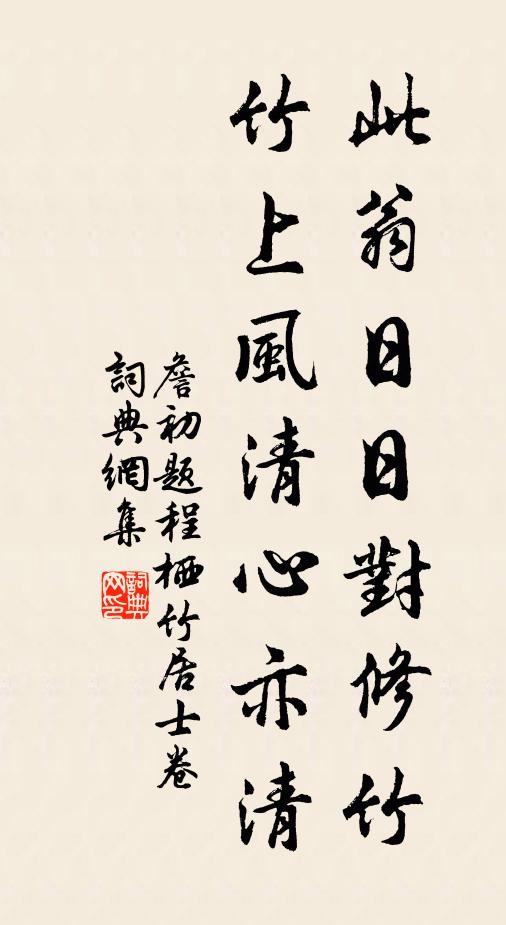 此翁日日對修竹
竹上風清心亦清
詹初題程栖竹居士卷
詞典網集
詞典网印